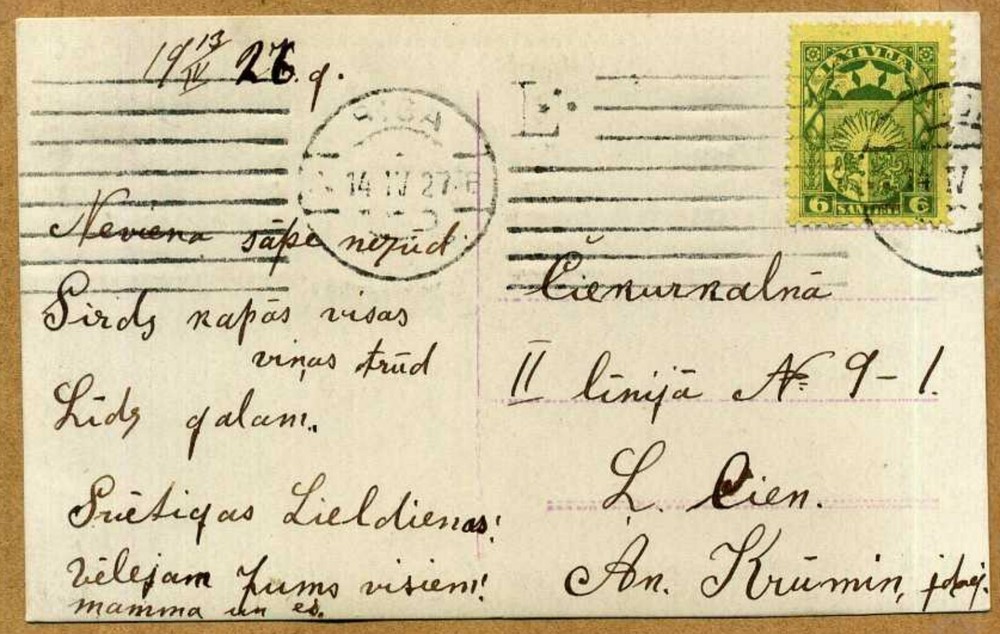 19 13/IV 26. g.
RIGA
14 IV 27
LATVIJA
6 SANTIMI 6
Neviena sāpe nezūd
Sirds kapās visas
viņas trūd
Līdz galam.
Priētigas Lieldienas!
Vēlejam Jums visiem!
mamma un es.
Čiekurkalnā
II līnijā № 9-1.
Ļ. Cien.
An. Krūmiņ, jdzej.